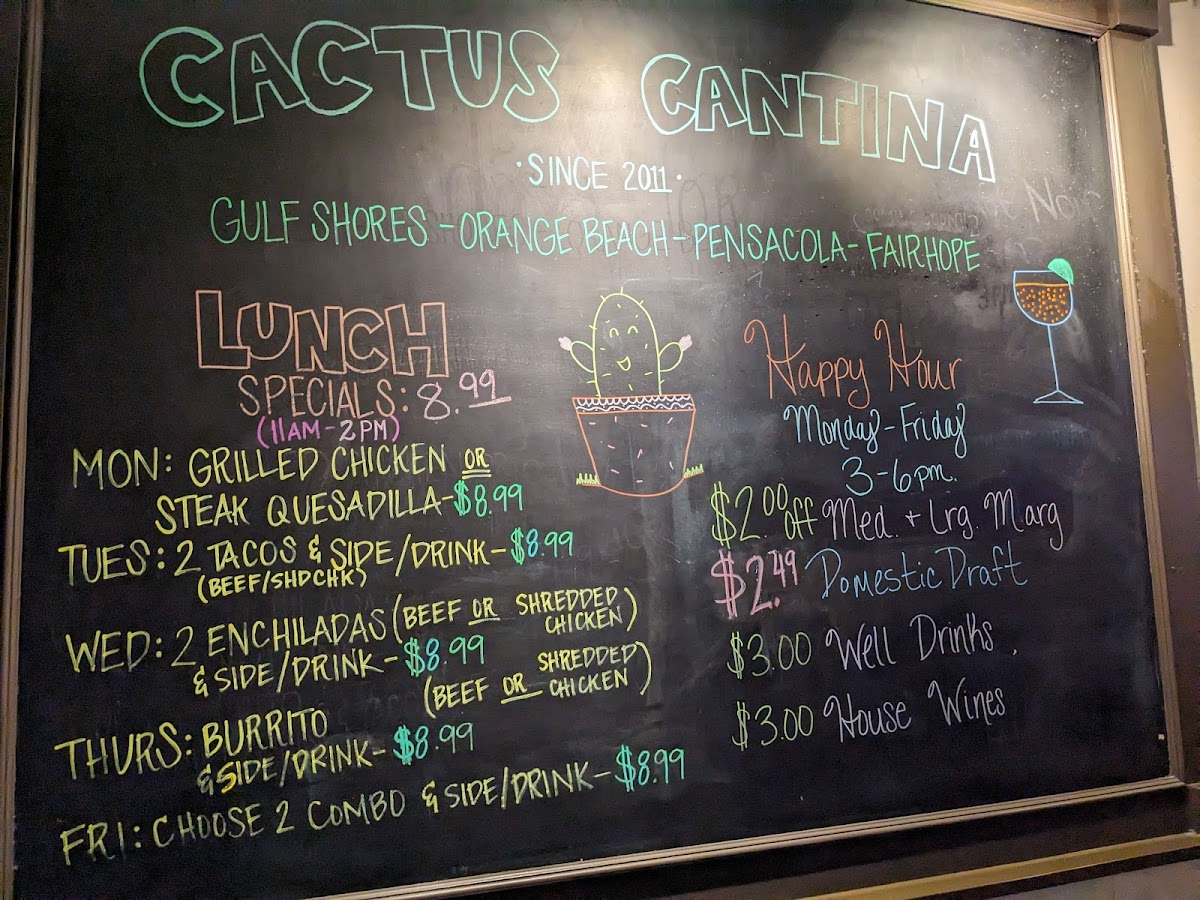 CACTUS CANTINA
·SINCE 2011·
GULF SHORES - ORANGE BEACH - PENSACOLA - FAIRHOPE
LUNCH
SPECIALS: 8.99
(11AM-2PM)
MON: GRILLED CHICKEN OR
STEAK QUESADILLA-$8.99
TUES: 2 TACOS & SIDE/DRINK-$8.99
(BEEF/SHDCHK)
WED: 2 ENCHILADAS (BEEF OR SHREDDED
CHICKEN)
& SIDE/DRINK-$8.99
THURS: BURRITO (BEEF OR SHREDDED
CHICKEN)
& SIDE/DRINK-$8.99
FRI: CHOOSE 2 COMBO & SIDE/DRINK-$8.99
Happy Hour
Monday-Friday
3-6pm.
$2.00 off Med. + Lrg. Marg
$2.49 Domestic Draft
$3.00 Well Drinks
$3.00 House Wines